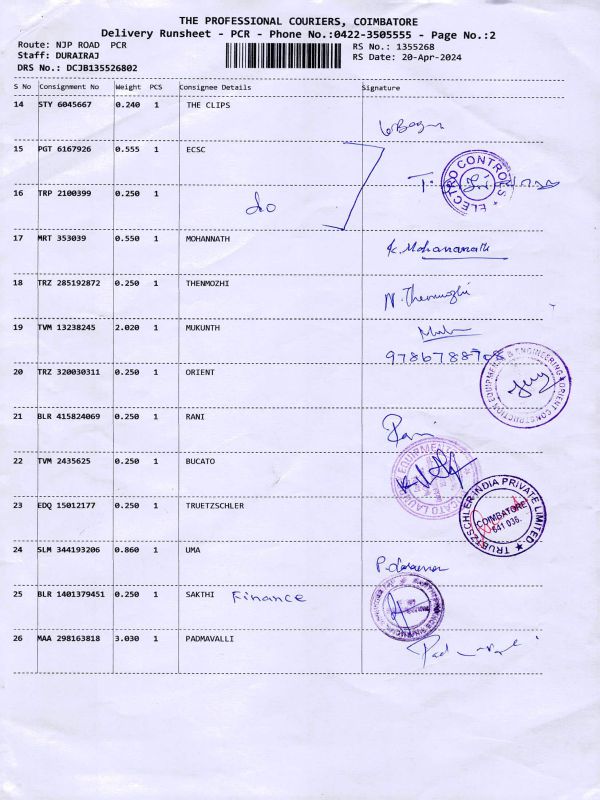 THE PROFESSIONAL COURIERS, COIMBATORE
Delivery Runsheet - PCR - Phone No.:0422-3505555 - Page No.:2
Route: NJP ROAD PCR
RS No.: 1355268
Staff: DURAIRAJ
RS Date: 20-Apr-2024
DRS No.: DCJB135526802
S No Consignment No Weight PCS Consignee Details Signature
14 STY 6045667 0.240 1 THE CLIPS
15 PGT 6167926 0.555 1 ECSC
ELECTRO CONTROLS
16 TRP 2100399 0.250 1
do
17 MRT 353039 0.550 1 MOHANNATH
K. Mohananath
18 TRZ 285192872 0.250 1 THENMOZHI
N. Thenmozhi
19 TVM 13238245 2.020 1 MUKUNTH
9786788708
20 TRZ 320030311 0.250 1 ORIENT
ORIENT CONSTRUCTION EQUIPMENTS & ENGINEERING
21 BLR 415824069 0.250 1 RANI
Rani
22 TVM 2435625 0.250 1 BUCATO
EQUIPMENT
23 EDQ 15012177 0.250 1 TRUETZSCHLER
TRUETZSCHLER INDIA PRIVATE LIMITED
COIMBATORE
641 038.
24 SLM 344193206 0.860 1 UMA
25 BLR 1401379451 0.250 1 SAKTHI Finance
26 MAA 298163818 3.030 1 PADMAVALLI